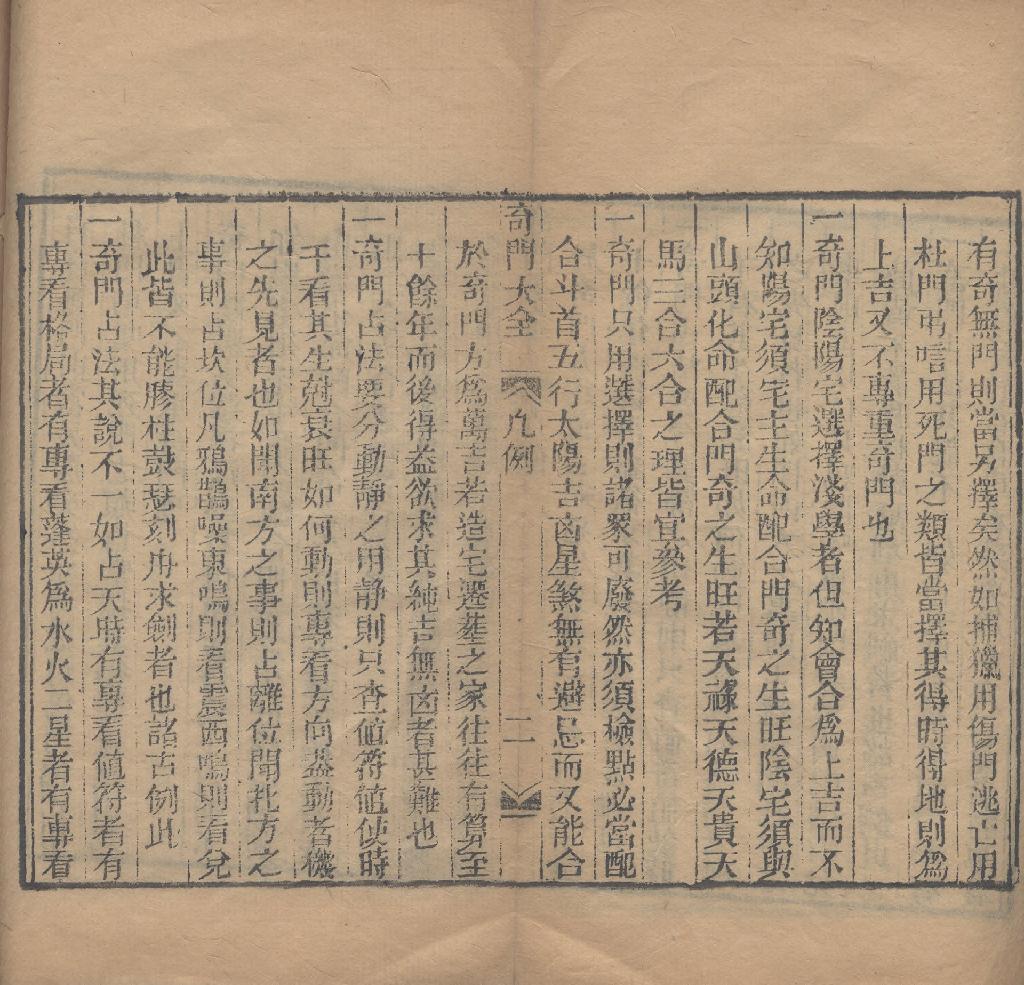 有奇無門則當另擇矣然如捕獵用傷門逃亡用
杜門弔唁用死門之類皆當擇其得時得地則爲
上吉又不專重奇門也
一奇門陰陽宅選擇淺學者但知會合爲上吉而不
知陽宅須宅主生命配合門奇之生旺陰宅須與
山頭化命配合門奇之生旺若天祿天德天貴天
馬三合六合之理皆宜參考
一奇門只用選擇則諸家可廢然亦須檢點必當配
合斗首五行太陽吉凶星煞無有避忌而又能合
奇門大全 凡例 二
於奇門方爲萬吉若造宅遷墓之家往往有算至
十餘年而後得葢欲求其純吉無凶者甚難也
一奇門占法要分動靜之用静則只查値符値使時
干看其生尅衰旺如何動則專看方向葢動者機
之先見者也如聞南方之事則占離位聞北方之
事則占坎位凡鴉鵲噪東鳴則看震西鳴則看兌
此皆不能膠柱鼓瑟刻舟求劍者也諸古例此
一奇門占法其說不一如占天時有專看値符者有
專看格局者有專看蓬英爲水火二星者有專看